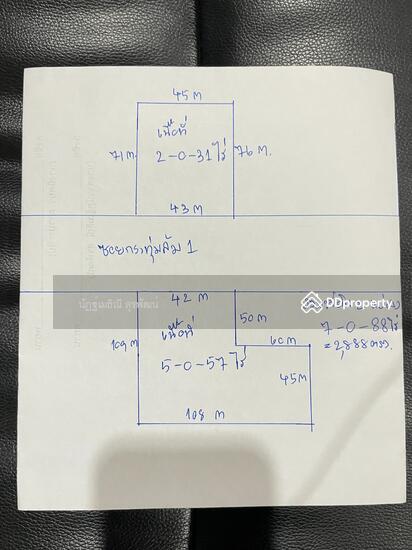 45 m
เนื้อที่
71 m
2-0-31 ไร่
76 m.
43 m
ซอยกระทุ่มล้ม 1
นัฏฐ์เมธิณี
DDproperty
42 m
เนื้อที่
50 m
7-0-88 ไร่
109 m
60 m
= 2,888 ตรว.
5-0-57 ไร่
45 m
108 m